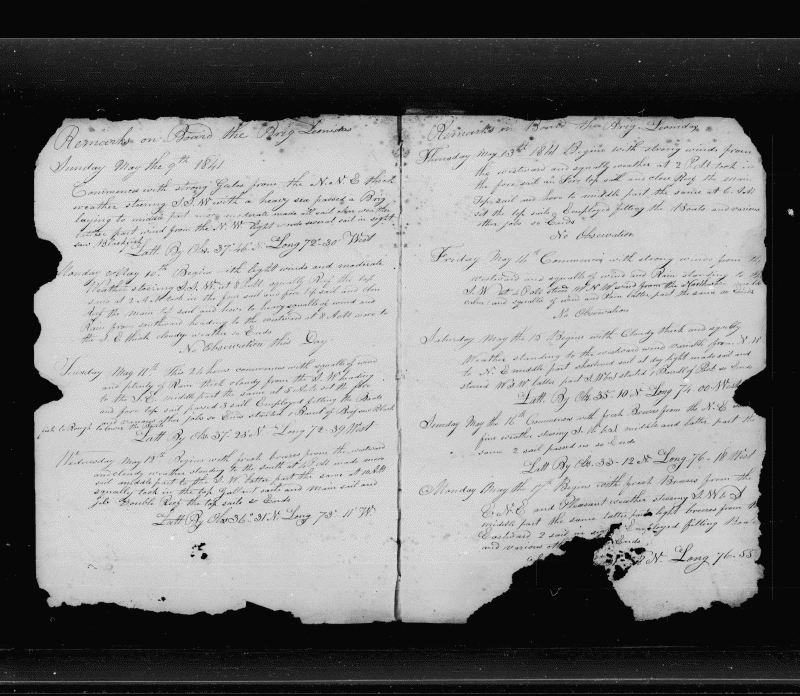 Remarks on Board the Brig Leonidas
Sunday May the 9th 1841
Commences with strong Gales from the N. N. E thick
weather stearing S. S. W with a heavy sea passed a Brig
laying to middle part more moderate made all sail clear weather
latter part wind from the N. W. Light winds several sail in sight
saw Blackfish
Latt By Obs. 37°-46 N Long 72°-30 West
Monday May 10th Begins with light winds and moderate
Weather stearing S. S. W. at 8 PM squally Reef the top
sails at 2 A. M. took in the fore sail and fore top sail and close
Reef the main top sail and hove to heavy squalls of wind and
Rain from southward heading to the westward at 8 AM wore to
the S. E thick cloudy weather so Ends
No Observation this Day
Tuesday May 11th this 24 hours commences with squalls of wind
and plenty of Rain thick cloudy from the S. W heading
to the S. E middle part the same at 5 AM set the fore
and fore top sail passed 3 sail Employed fitting the Boats
and other jobs so Ends 1 Barrel of Beef
to Rough to lower the Boats
Latt By Obs 37-23 N Long 72-39 West
Wednesday May 12th Begins with fresh breezes from the westward
and cloudy weather standing to the south at 4 PM made more
sail middle part to the S. W latter part the same at 10 AM
squally took in the top Gallant sails and main sail and
Jib Double Reef the top sails so Ends
Latt By Obs 36°-31 N Long 73°-11 W.
Remarks on Board the Brig Leonidas
Thursday May 13th 1841 Begins with strong winds from
the westward and squally weather at 2 PM took in
the fore sail and fore top sail and close Reef the main
top sail and hove to middle part the same at 6 AM
set the top sails Employed fitting the Boats and various
other jobs so Ends
No Observation
Friday May 14th Commences with strong winds from the
westward and squalls of wind and Rain standing to the
S. W. at 4 PM W. N. W wind from the Northward middle
calm and squalls of wind and Rain latter part the same so Ends
No Observation
Saturday May the 15 Begins with Cloudy thick and squally
Weather standing to the westward wind variable from N. W
to N. E middle part shortened sail at day light made sail and
steared W. S. W latter part S. W 1 Barrell of Pork so Ends
Latt By Obs. 35-10 N Long 74-00 West
Sunday May the 16th Commences with fresh Breezes from the N. E and
fine weather stearing middle and latter part the
same 2 sail passed us so Ends
Latt By Obs-33-12 N Long 76-18 West
Monday May the 17th Begins with fresh Breezes from the
E. N. E and Pleasant weather stearing S. W & S
middle part the same latter part light breezes from the
Eastward 2 sail in sight Employed fitting Boats
and various Ends
N. Long 76-55